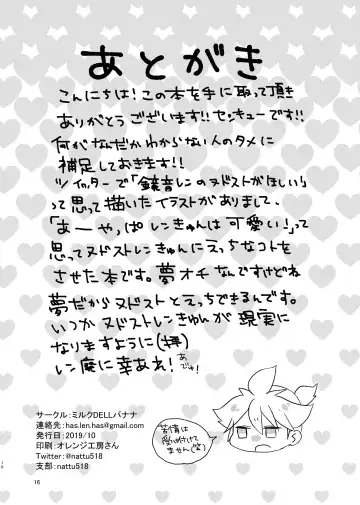 あとがき
こんにちは!この本を手に取って頂き
ありがとうございます!!センキューです!!
何がなんだかわからない人のタメに
補足しておきます!!
ツイッターで「鏡音レンのヌドストがほしい」
って思って描いたイラストがありまして、
「あーやっぱレンきゅんは可愛い!」って
思ってヌドストレンきゅんにえっちなコトを
させた本です。夢オチなんですけどね
夢だからヌドストとえっちできるんです。
いつかヌドストレンきゅんが現実に
なりますように(拝)
レン廃に幸あれ!
あでゅ!
苦情は
受け付けて
ません(笑)
サークル:ミルクDELLバナナ
連絡先:has.len.has@gmail.com
発行日:2019/10
印刷:オレンジ工房さん
Twitter:@nattu518
支部:nattu518
16